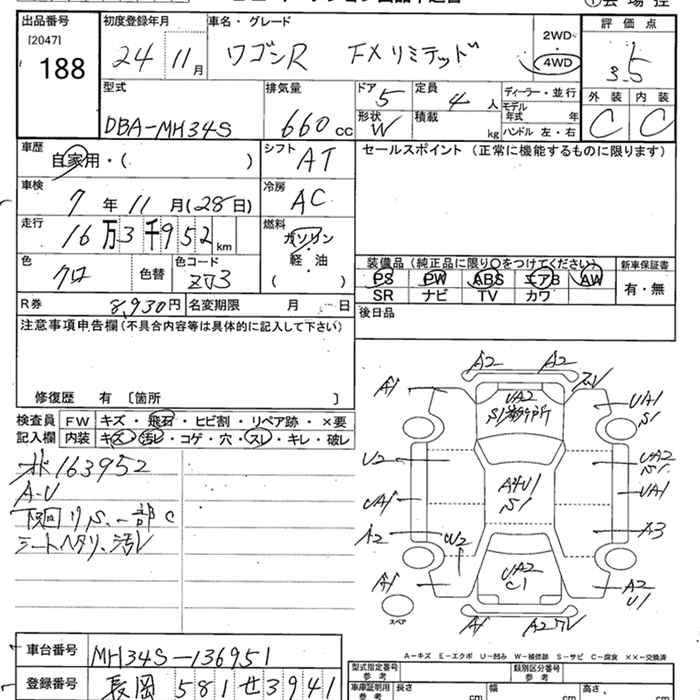 出品番号 初度登録年月 車名・グレード 評価点
[2047]
188
24 11月 ワゴンR FXリミテッド 2WD・4WD 3.5
型式 排気量 ドア 5 定員 4人 ディーラー・並行 外装 内装
DBA-MH34S 660cc 形状 W 積載 kg モデル年式 年 ハンドル 左・右 C C
車歴 自家用・( ) シフト AT セールスポイント (正常に機能するものに限ります)
車検 7年11月(28日) 冷房 AC
走行 16万3千952km 燃料 ガソリン・軽・油 ( )
色 クロ 色替 色コード ZJ3
装備品 (純正品に限り○をつけてください) 新車保証書
PS PW ABS エアB AW 有・無
SR ナビ TV カワ
R券 8,930円 名変期限 月 日 後日品
注意事項申告欄(不具合内容等は具体的に記入して下さい)
修復歴 有 〔箇所 〕
検査員 FW キズ・飛石・ヒビ割・リペア跡・×要
記入欄 内装 キズ・汚レ・コゲ・穴・スレ・キレ・破レ
163952
A-U
下回りS.一部C
シートヘタリ、汚レ
A2 A2
A1 UA2 UA1
S1 S1
U2 UA2
S1
UA1 A4U1 UA1
S1
A2 U2 A3
A1 UA2 A2
C1 U1
スペア
A1
A-キズ E-エクボ U-凹み W-補修跡 S-サビ C-腐食 ××-交換済
車台番号 MH34S-136951
登録番号 長岡 581 せ 3941
型式指定番号 参考 類別区分番号 参考
車庫証明用 参考 長さ 幅 高さ